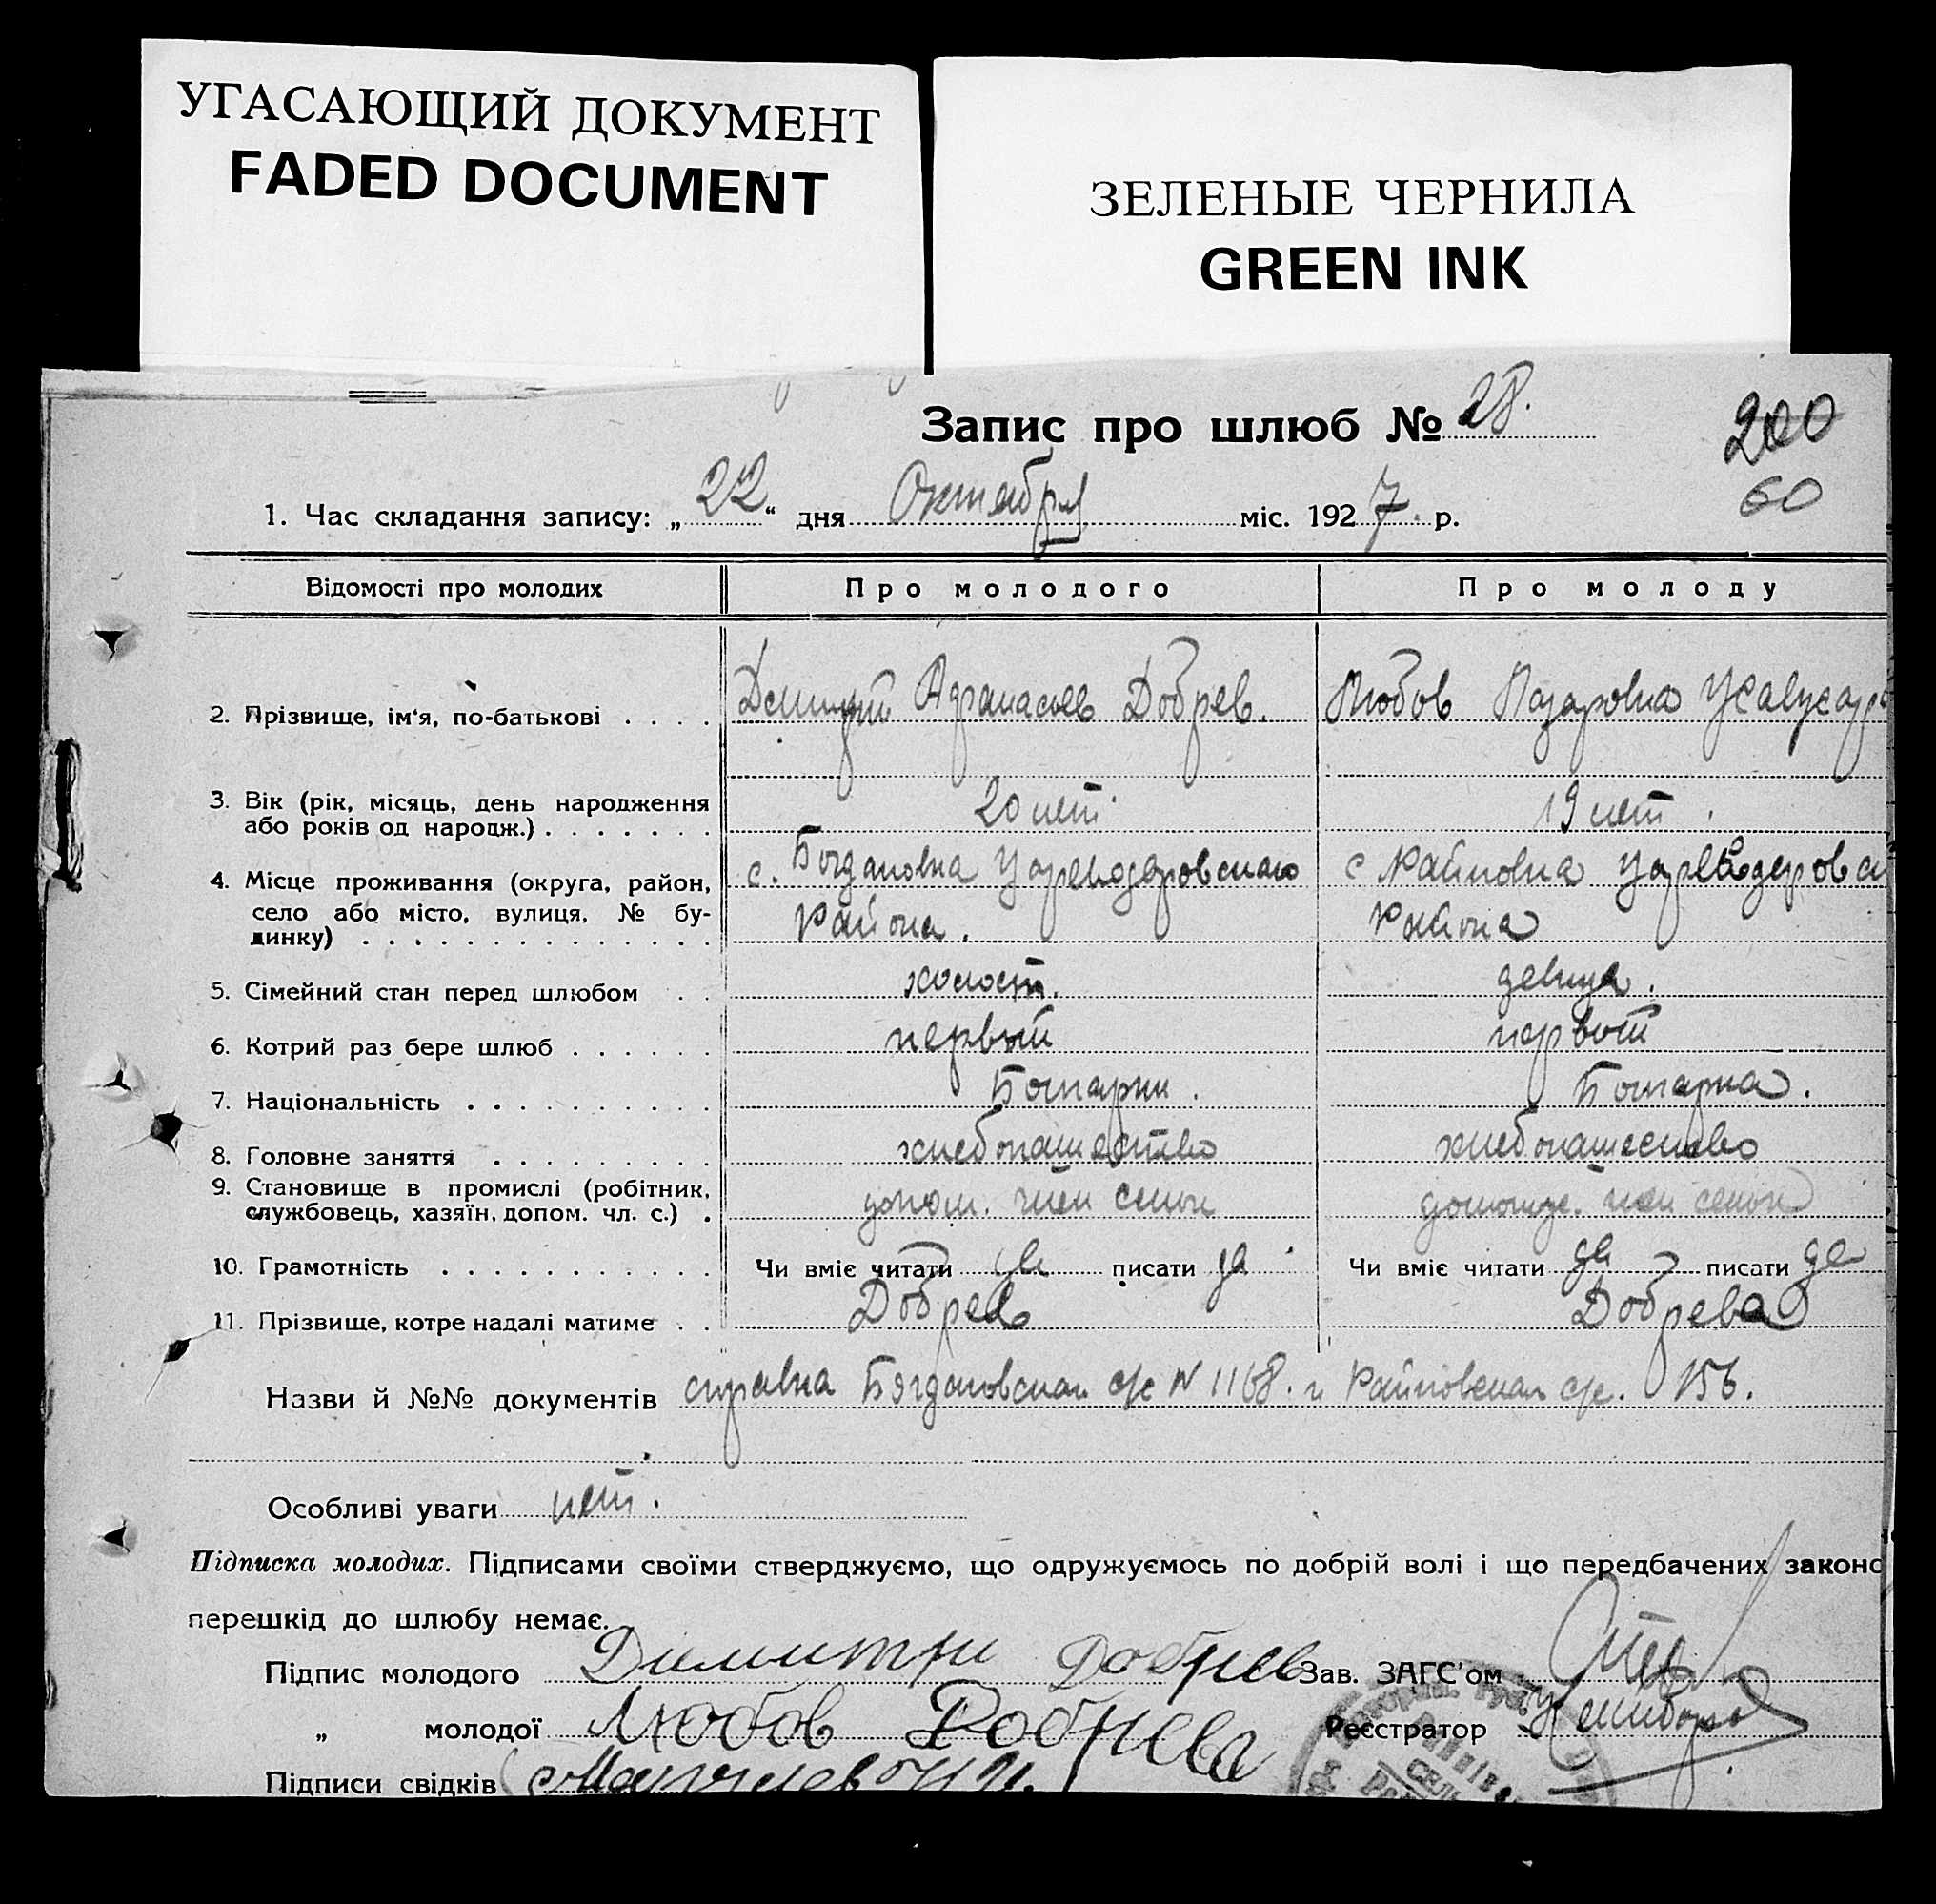 УГАСАЮЩИЙ ДОКУМЕНТ
FADED DOCUMENT
ЗЕЛЕНЫЕ ЧЕРНИЛА
GREEN INK
Запис про шлюб № 28.
200
60
1. Час складання запису: „22“ дня Октября міс. 1927 р.
Відомості про молодих Про молодого Про молоду
2. Прізвище, ім'я, по-батькові . . . . Дмитрий Афанасьев Добрев. Любов Лазаровна
3. Вік (рік, місяць, день народження
або років од народж.) . . . . . . . 20 лет. 19 лет.
4. Місце проживання (округа, район, с. Богдановка Цареводаровского с Райновка Цареводаровск
село або місто, вулиця, № бу-
динку) . . . . . . . . . . . . . . Района. Района
5. Сімейний стан перед шлюбом . . холост. девица.
6. Котрий раз бере шлюб . . . . . . первый первый
7. Національність . . . . . . . . . . Болгарин. Болгарка.
8. Головне заняття . . . . . . . . . хлебопашество хлебопашество
9. Становище в промислі (робітник,
службовець, хазяїн, допом. чл. с.) . допом. член семьи член семьи
10. Грамотність . . . . . . . . . . . Чи вміє читати да писати да Чи вміє читати да писати да
11. Прізвище, котре надалі матиме . . Добрев Добрева
Назви й №№ документів справка Богдановская с/с N 1168. и Райновская с/с. 156.
Особливі уваги нет.
Підписка молодих. Підписами своїми стверджуємо, що одружуємось по добрій волі і що передбачених законо
перешкід до шлюбу немає.
Підпис молодого Димитри Добрев Зав. ЗАГС'ом
„ молодої Любов Добрева Реєстратор
Підписи свідків